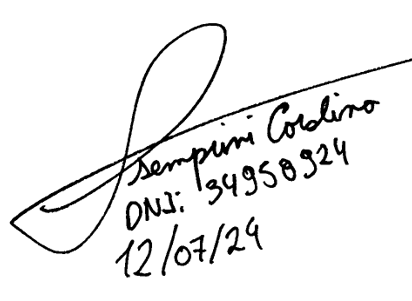 Semprini Cordina
DNI: 34958924
12/07/24